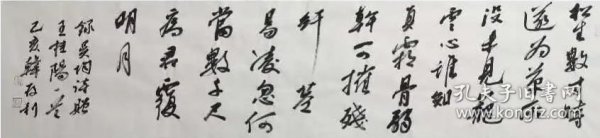 松生數寸時
遂為草所
没未見籠
雲心誰知
負霜骨弱
幹可摧殘
纤莖
易凌忽何
當數千尺
為君覆
明月
録吴均詩贈
王桂陽一首
亥韓
孔夫子旧书网